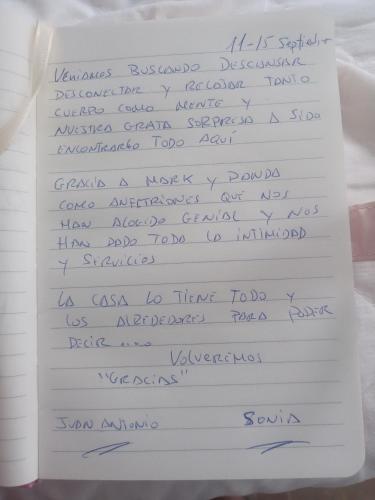 11-15 Septiembre
VENIAMOS BUSCANDO DESCANSAR
DESCONECTAR Y RELAJAR TANTO
CUERPO COMO MENTE Y
NUESTRA GRATA SORPRESA A SIDO
ENCONTRARLO TODO AQUÍ
GRACIA A MARK Y
COMO ANFITRIONES QUE NOS
HAN ALOGIDO GENIAL Y NOS
HAN DADO TODA LA INTIMIDAD
Y SERVICIOS
LA CASA LO TIENE TODO Y
LOS ALREDEDORES PARA PODER
DECIR ....
VOLVEREMOS
"GRACIAS"
JUAN ANTONIO SONIA